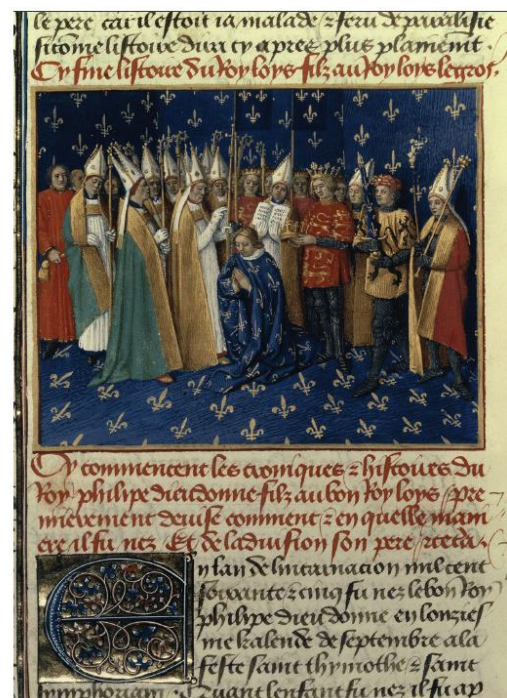 le pere car il estoit ia malade ⁊ feru de paralisie
sicome listoire dira cy apres plus plainement.
Cy fine listoire du Roy loys filz au Roy loys le gros.
Cy commencent les croniques ⁊ histoires du
Roy phelipe dieudonne filz au bon Roy loys ⁊ pre
mierement deuise comment ⁊ en quelle mani
ere il fu nez Et de la diuision son pere ⁊ cetera.
En lan de lincarnacion mil cent
soixante ⁊ cinq fu nez le bon Roy
phelipe dieudonne en lonzies
me kalende de septembre a la
feste saint thymothe ⁊ saint
symphoriam. Quant lenfant fu nez il fu ap